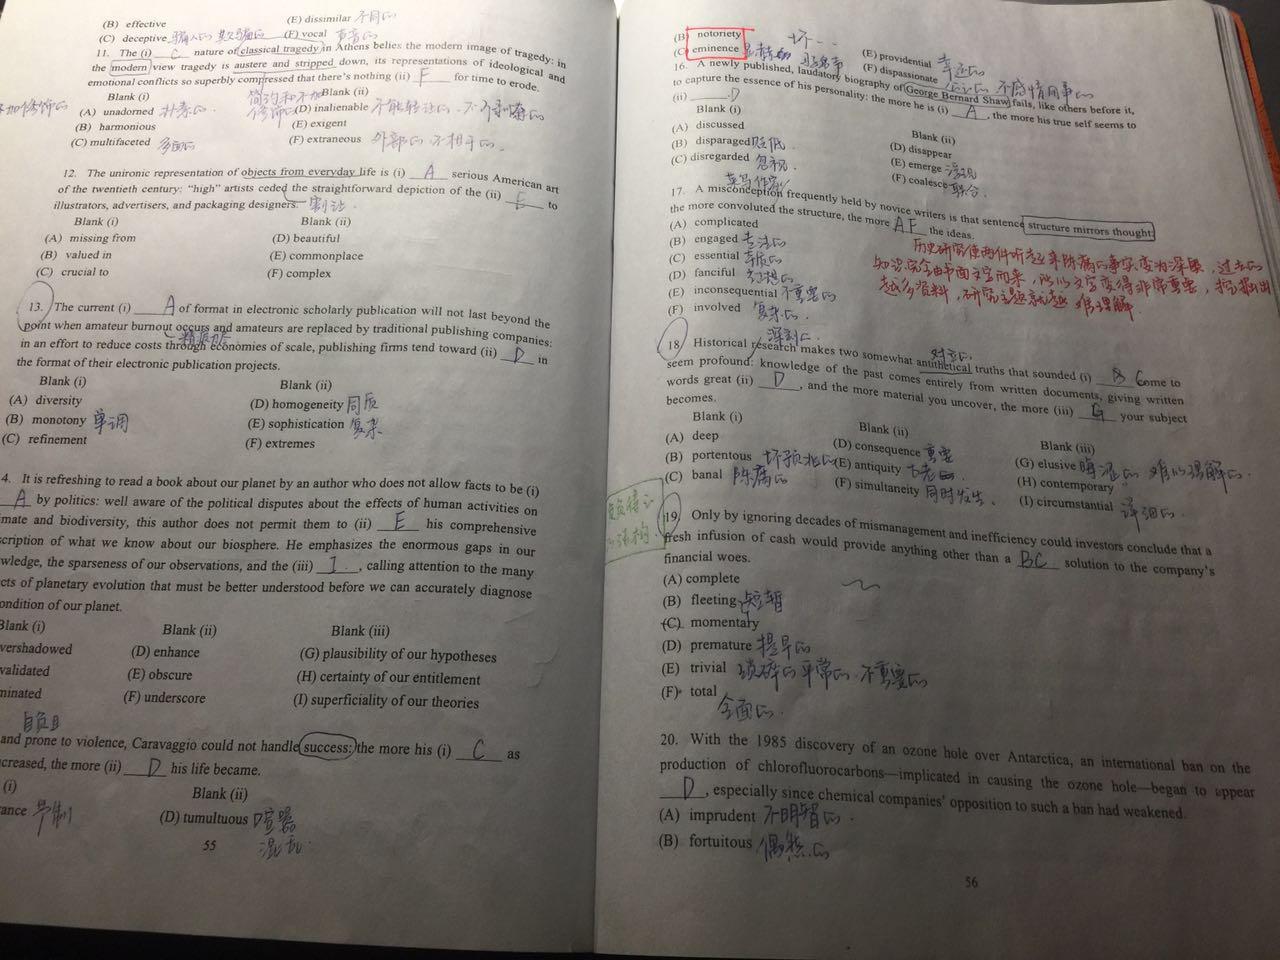 (B) effective
(E) dissimilar 不同的
(C) deceptive 骗人的
(F) vocal 声音的
11. The (i) C nature of classical tragedy in Athens belies the modern image of tragedy: in
the modern view tragedy is austere and stripped down, its representations of ideological and
emotional conflicts so superbly compressed that there's nothing (ii) F for time to erode.
Blank (i)
Blank (ii)
(A) unadorned 朴素的
(D) inalienable
(B) harmonious
(E) exigent
(C) multifaceted 多面的
(F) extraneous 外部的 不相干的
12. The unironic representation of objects from everyday life is (i) A serious American art
of the twentieth century: "high" artists ceded the straightforward depiction of the (ii) E to
illustrators, advertisers, and packaging designers. 割让
Blank (i)
Blank (ii)
(A) missing from
(D) beautiful
(B) valued in
(E) commonplace
(C) crucial to
(F) complex
13. The current (i) A of format in electronic scholarly publication will not last beyond the
point when amateur burnout occurs and amateurs are replaced by traditional publishing companies:
in an effort to reduce costs through economies of scale, publishing firms tend toward (ii) D in
the format of their electronic publication projects.
Blank (i)
Blank (ii)
(A) diversity
(D) homogeneity 同质
(B) monotony 单调
(E) sophistication 复杂
(C) refinement
(F) extremes
4. It is refreshing to read a book about our planet by an author who does not allow facts to be (i)
A by politics: well aware of the political disputes about the effects of human activities on
imate and biodiversity, this author does not permit them to (ii) E his comprehensive
scription of what we know about our biosphere. He emphasizes the enormous gaps in our
wledge, the sparseness of our observations, and the (iii) I, calling attention to the many
cts of planetary evolution that must be better understood before we can accurately diagnose
ondition of our planet.
Blank (i)
Blank (ii)
Blank (iii)
vershadowed
(D) enhance
(G) plausibility of our hypotheses
validated
(E) obscure
(H) certainty of our entitlement
minated
(F) underscore
(I) superficiality of our theories
and prone to violence, Caravaggio could not handle success: the more his (i) C as
creased, the more (ii) D his life became.
(i)
Blank (ii)
ance
(D) tumultuous 喧嚣
混乱
55
(B) notoriety 坏
(C) eminence
(E) providential 幸运的
(F) dispassionate 公正的 不感情用事的
16. A newly published, laudatory biography of George Bernard Shaw fails, like others before it,
to capture the essence of his personality: the more he is (i) A, the more his true self seems to
(ii) D
Blank (i)
Blank (ii)
(A) discussed
(D) disappear
(B) disparaged 贬低
(E) emerge 浮现
(C) disregarded 忽视
(F) coalesce 联合
17. A misconception frequently held by novice writers is that sentence structure mirrors thought:
the more convoluted the structure, the more AF the ideas.
(A) complicated
(B) engaged
(C) essential
(D) fanciful 幻想的
(E) inconsequential 不重要的
(F) involved 复杂的
深刻的
18. Historical research makes two somewhat antithetical truths that sounded (i) C come to
seem profound: knowledge of the past comes entirely from written documents, giving written
words great (ii) D, and the more material you uncover, the more (iii) G your subject
becomes.
Blank (i)
Blank (ii)
Blank (iii)
(A) deep
(D) consequence 重要
(G) elusive 晦涩的 难以理解的
(B) portentous
(E) antiquity 古老
(H) contemporary
(C) banal 陈腐的
(F) simultaneity 同时发生
(I) circumstantial 详细的
19. Only by ignoring decades of mismanagement and inefficiency could investors conclude that a
fresh infusion of cash would provide anything other than a BC solution to the company's
financial woes.
(A) complete
(B) fleeting 短暂
(C) momentary
(D) premature 提早的
(E) trivial 琐碎的 平常的 不重要的
(F) total
全面的
20. With the 1985 discovery of an ozone hole over Antarctica, an international ban on the
production of chlorofluorocarbons—implicated in causing the ozone hole—began to appear
D, especially since chemical companies' opposition to such a ban had weakened.
(A) imprudent 不明智的
(B) fortuitous 偶然的
56